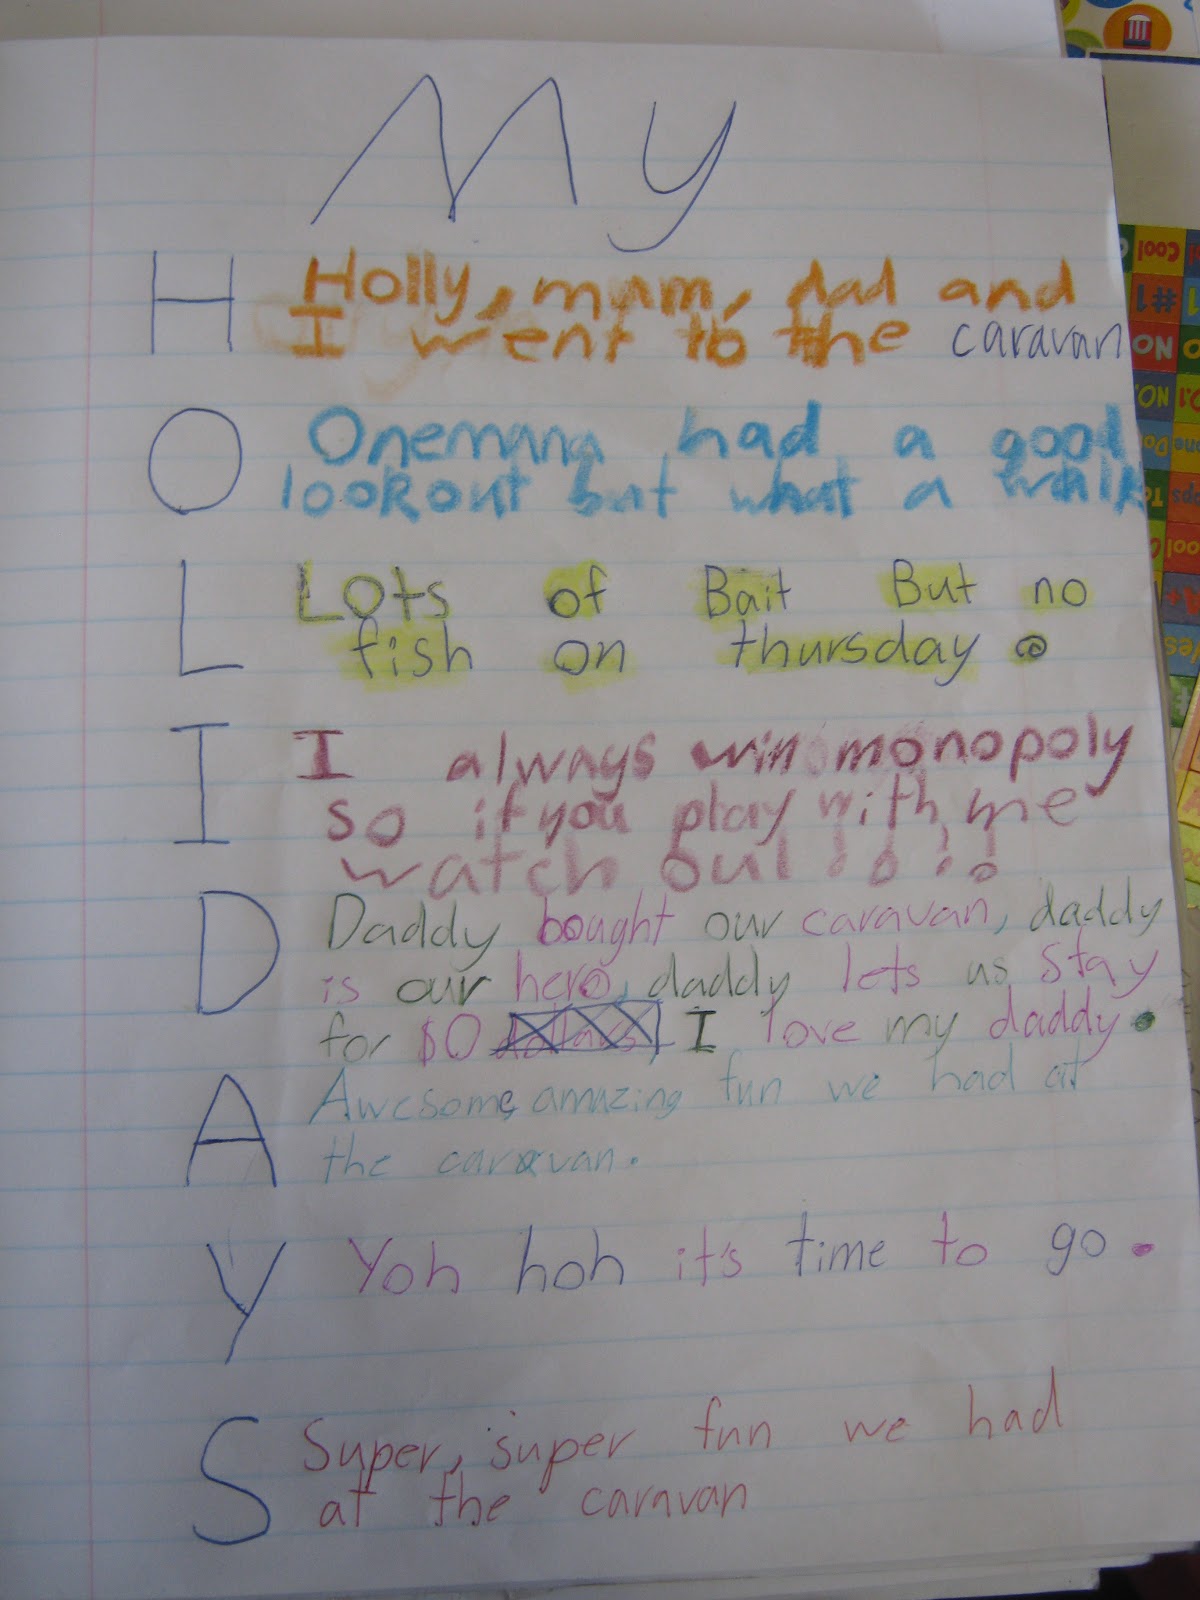 My
H Holly, mum, dad and
I went to the caravan
O Onemana had a good
lookout but what a walk
L Lots of Bait But no
fish on thursday.
I I always win monopoly
so if you play with me
watch out!!!!
D Daddy bought our caravan, daddy
is our hero, daddy lets us stay
for $0 I love my daddy.
A Awesome amazing fun we had at
the caravan.
Y Yoh hoh it's time to go.
S Super, super fun we had
at the caravan
Cool
#1
NO
NO.